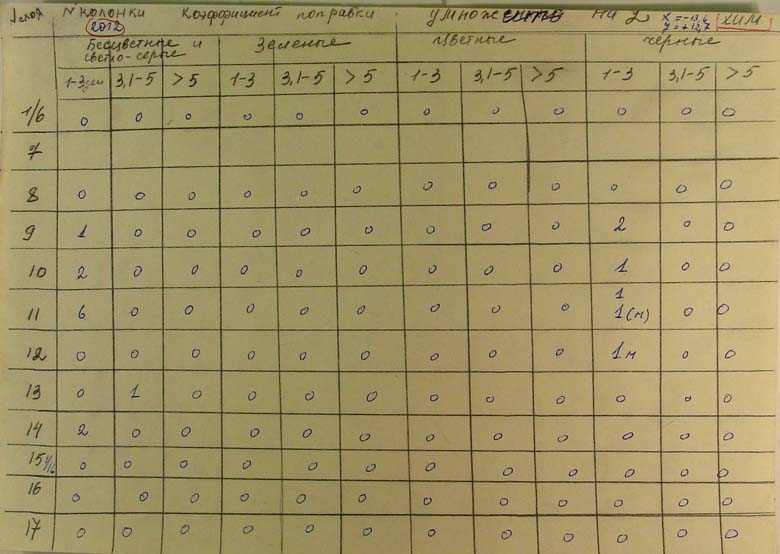 №слоя № колонки Коэффициент поправки умножить на 2 X=-13,6 ХИМ
2012 Y=+12,7
Бесцветные и светло-серые Зеленые Цветные Черные
1-3мм 3,1-5 >5 1-3 3,1-5 >5 1-3 3,1-5 >5 1-3 3,1-5 >5
1/6 0 0 0 0 0 0 0 0 0 0 0 0
7
8 0 0 0 0 0 0 0 0 0 0 0 0
9 1 0 0 0 0 0 0 0 0 2 0 0
10 2 0 0 0 0 0 0 0 0 1 0 0
11 6 0 0 0 0 0 0 0 0 1 1(м) 0 0
12 0 0 0 0 0 0 0 0 0 1м 0 0
13 0 1 0 0 0 0 0 0 0 0 0 0
14 2 0 0 0 0 0 0 0 0 0 0 0
15 0 0 0 0 0 0 0 0 0 0 0 0
16 0 0 0 0 0 0 0 0 0 0 0 0
17 0 0 0 0 0 0 0 0 0 0 0 0